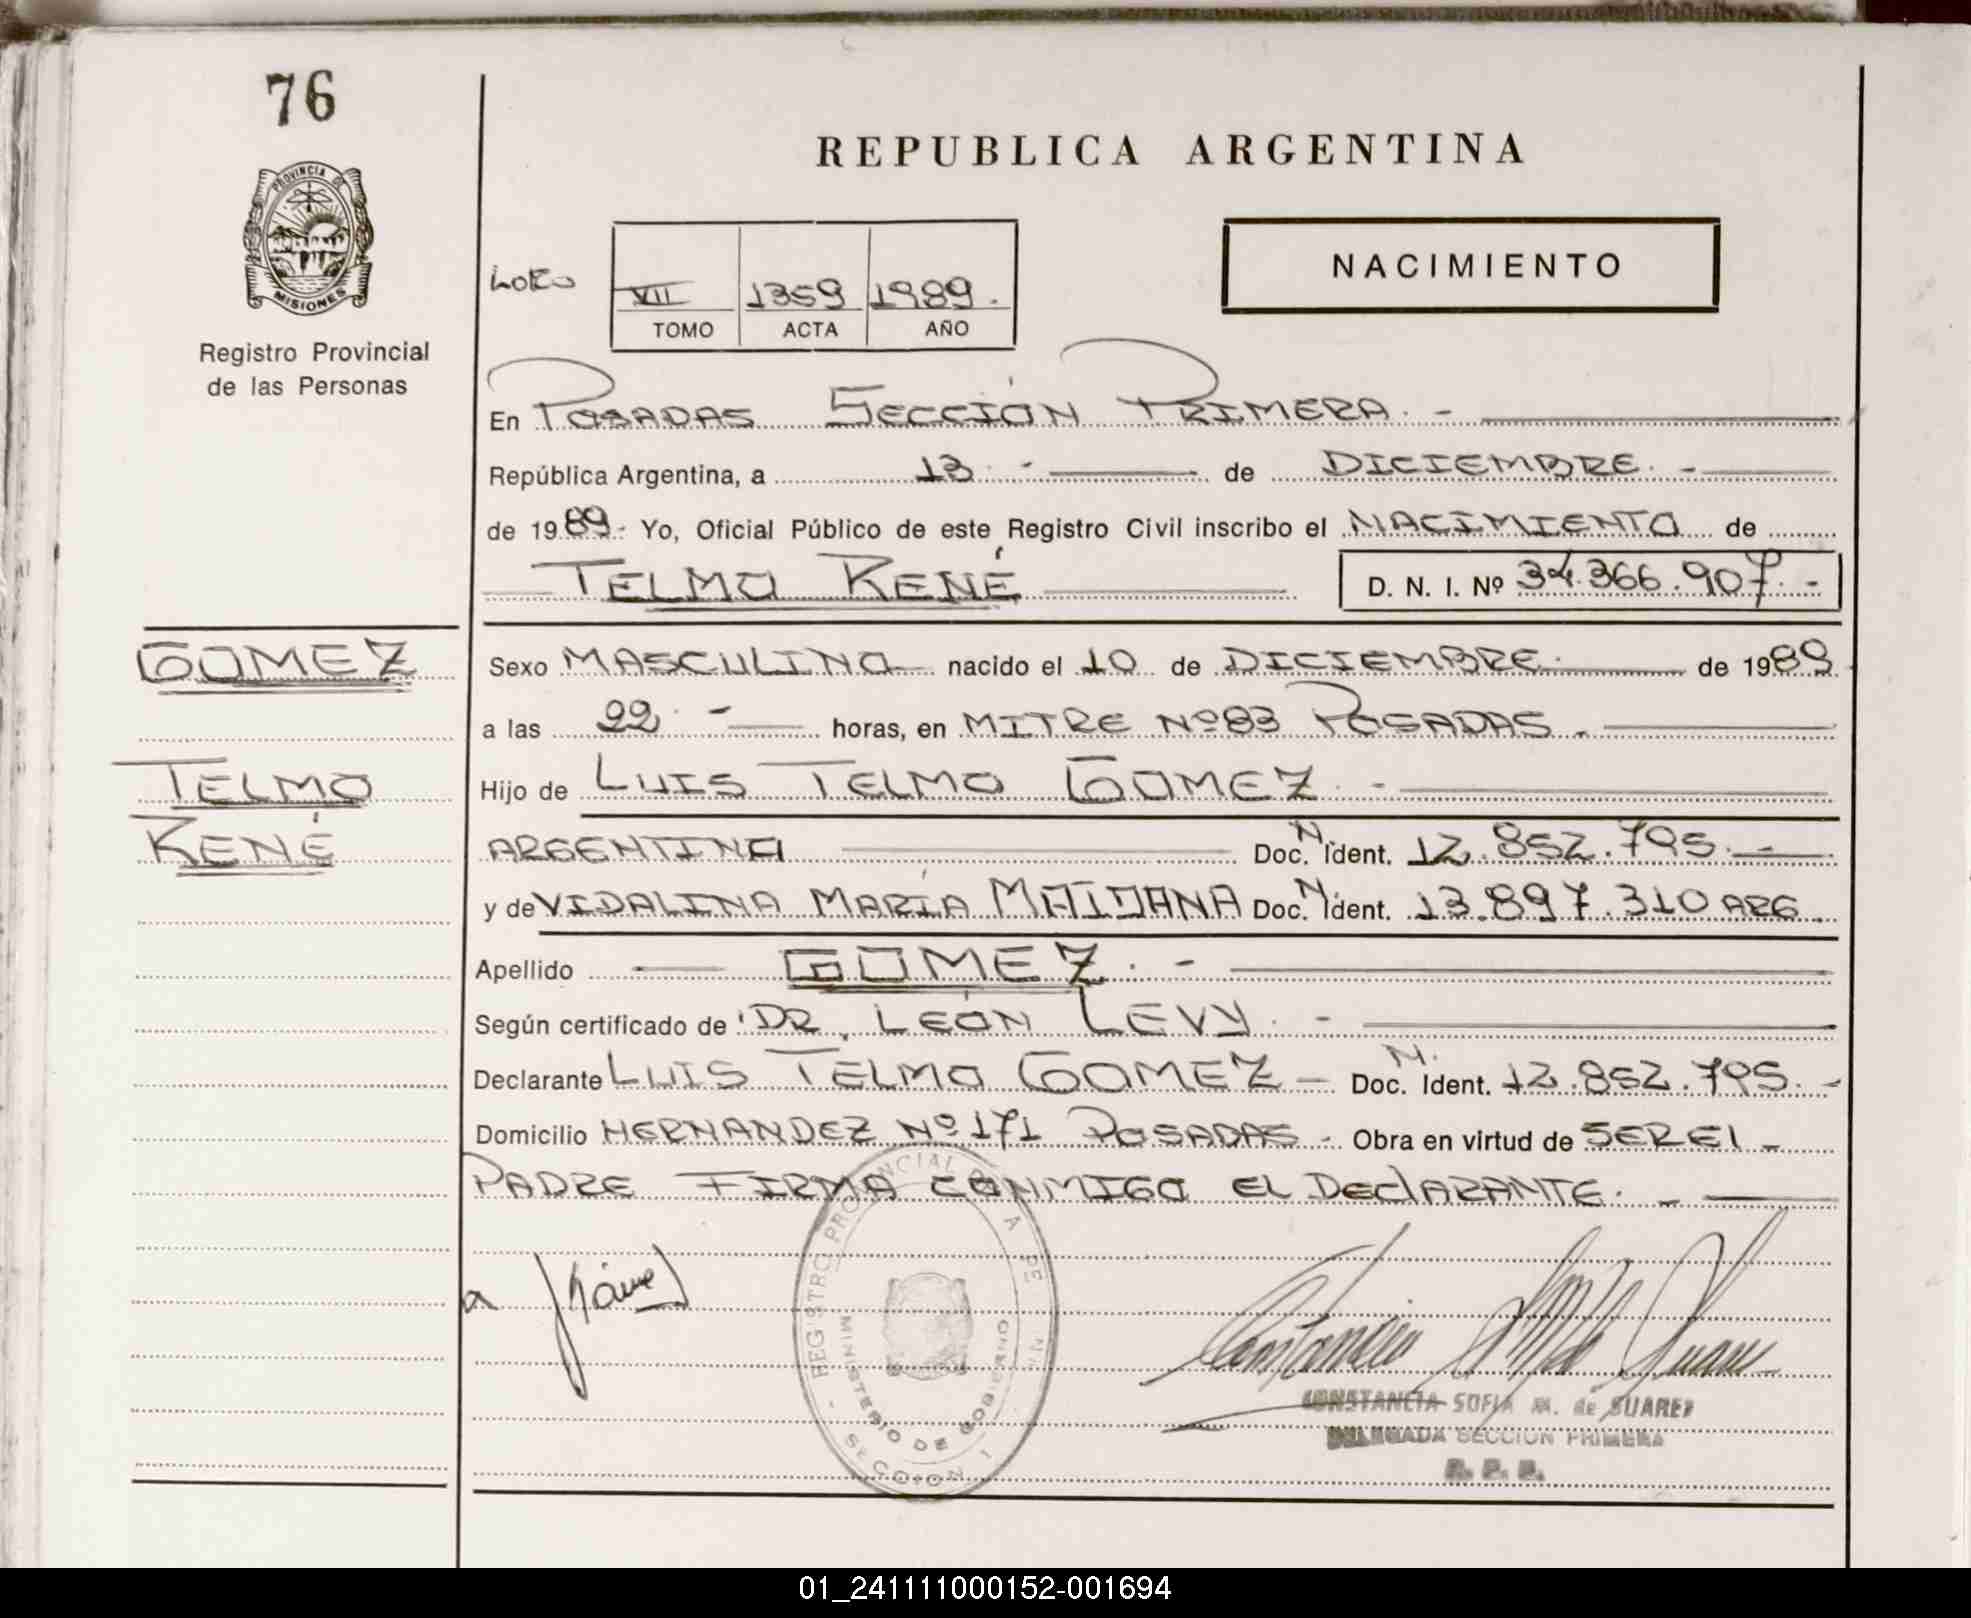 76
REPUBLICA ARGENTINA
PROVINCIA DE
MISIONES
Registro Provincial
de las Personas
NACIMIENTO
VII 1359 1989.
TOMO ACTA AÑO
En POSADAS SECCIÓN PRIMERA. -
República Argentina, a 13. - de DICIEMBRE. -
de 1989.- Yo, Oficial Público de este Registro Civil inscribo el NACIMIENTO de
TELMO RENÉ D. N. I. Nº 34.366.907. -
GOMEZ
Sexo MASCULINO nacido el 10 de DICIEMBRE. de 1989
a las 22. - horas, en MITRE Nº 83 POSADAS.
TELMO
Hijo de LUIS TELMO GOMEZ. -
RENÉ
ARGENTINA Doc. N. Ident. 12.852.795. -
y de VIDALINA MARÍA MAIDANA Doc. N. Ident. 13.897.310 ARG.
Apellido GOMEZ. -
Según certificado de DR. LEÓN LEVY. -
Declarante LUIS TELMO GOMEZ - Doc. N. Ident. 12.852.795. -
Domicilio HERNANDEZ Nº 171 POSADAS - Obra en virtud de SER EL -
PADRE FIRMA CONMIGO EL DECLARANTE. -
REGISTRO PROVINCIAL DE
MINISTERIO DE GOBIERNO
- SECCION 1
CONSTANCIA SOFIA M. de SUAREZ
DELEGADA SECCION PRIMERA
R. P. P.
01_241111000152-001694